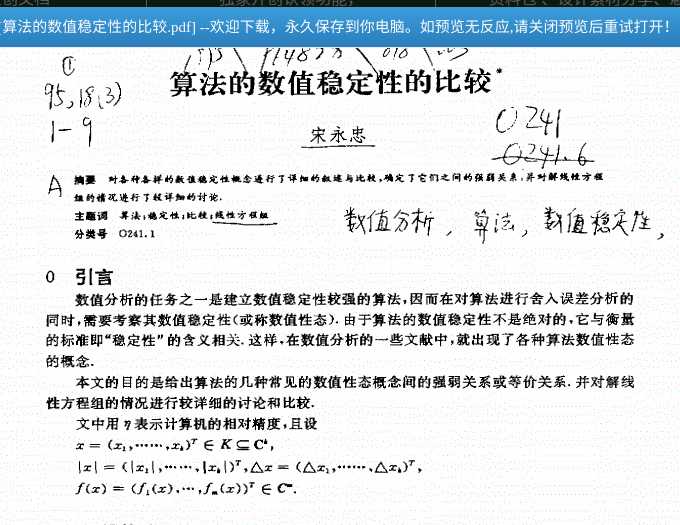 算法的数值稳定性的比较.pdf] --欢迎下载，永久保存到你电脑。如预览无反应,请关闭预览后重试打开！
①
95,18(3)
1-9
算法的数值稳定性的比较*
宋永忠
O241
O241.6
A
摘要 对各种各样的数值稳定性概念进行了详细的叙述与比较,确定了它们之间的强弱关系,并对解线性方程
组的情况进行了较详细的讨论.
主题词 算法;稳定性;比较;线性方程组
分类号 O241.1
数值分析，算法，数值稳定性，
0 引言
数值分析的任务之一是建立数值稳定性较强的算法,因而在对算法进行舍入误差分析的
同时,需要考察其数值稳定性(或称数值性态).由于算法的数值稳定性不是绝对的,它与衡量
的标准即“稳定性”的含义相关.这样,在数值分析的一些文献中,就出现了各种算法数值性态
的概念.
本文的目的是给出算法的几种常见的数值性态概念间的强弱关系或等价关系.并对解线
性方程组的情况进行较详细的讨论和比较.
文中用 η 表示计算机的相对精度,且设
x = (x₁,……,xₖ)ᵀ ∈ K ⊆ Cᵏ,
|x| = (|x₁|,……,|xₖ|)ᵀ,△x = (△x₁,……,△xₖ)ᵀ,
f(x) = (f₁(x),…,fₘ(x))ᵀ ∈ Cᵐ.